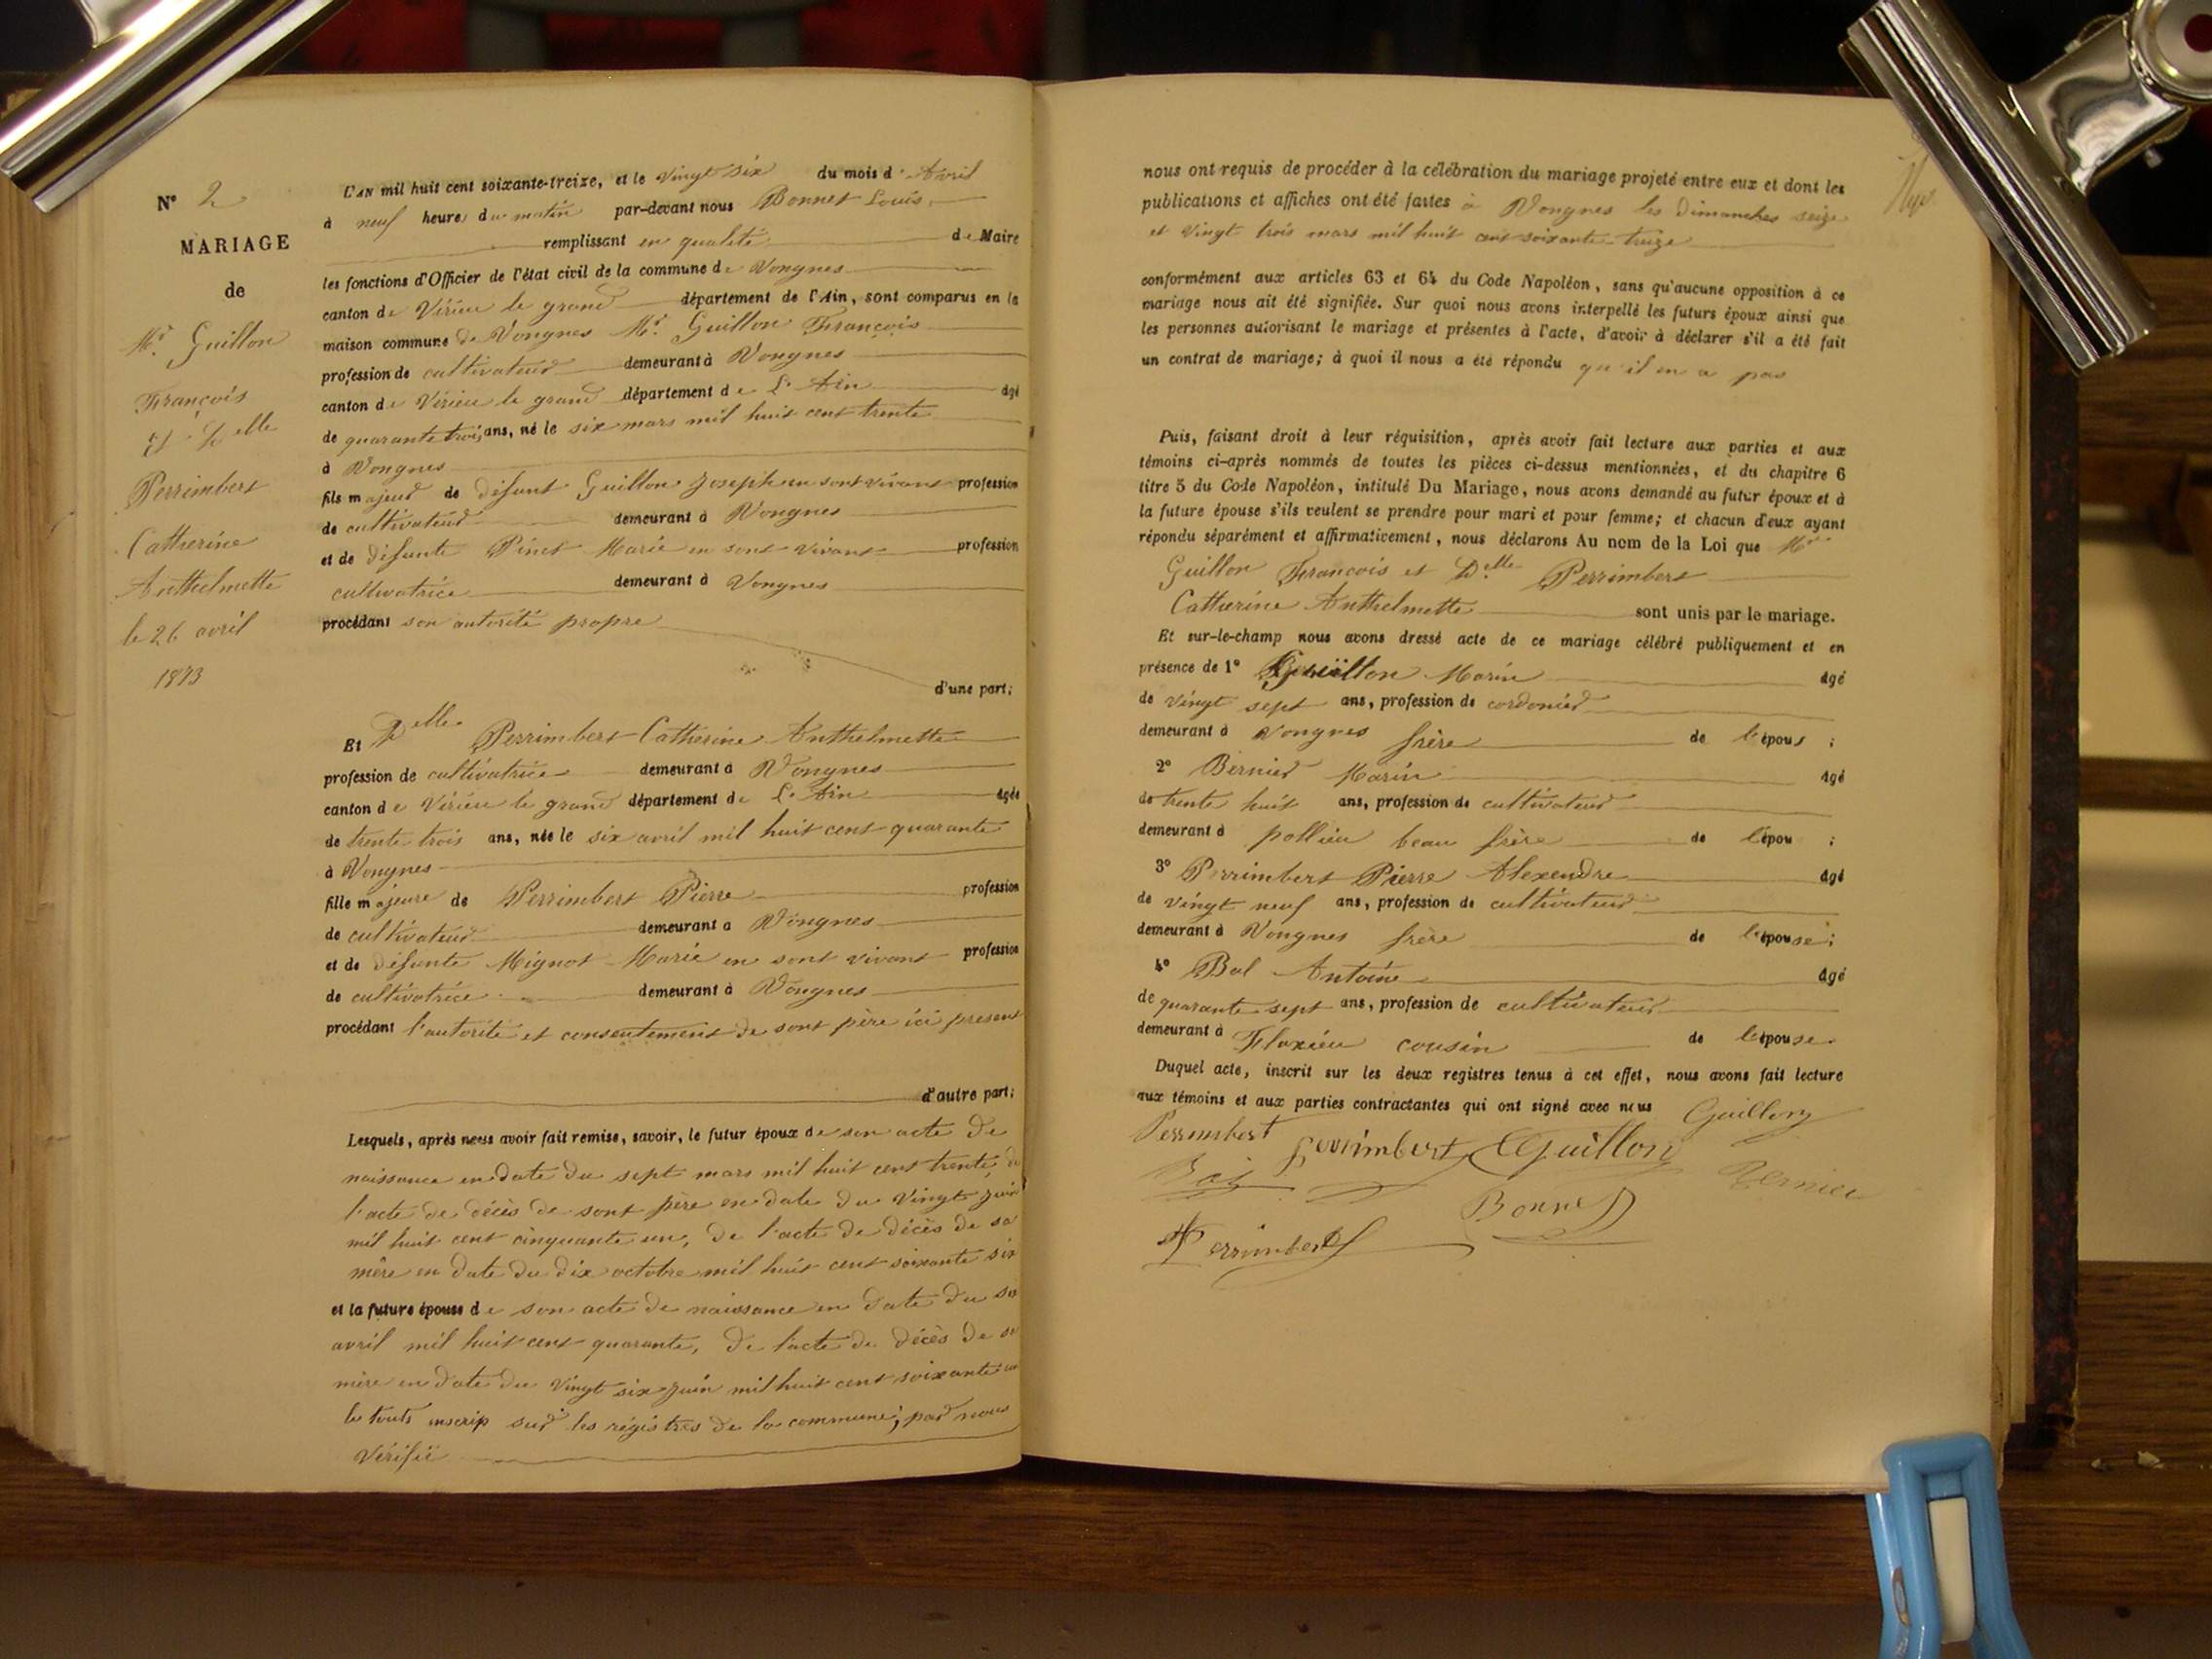 N° 2
MARIAGE
de
Mr Guillon
François
et Delle
Perrimbert
Catherine
Anthelmette
le 26 avril
1873
L'AN mil huit cent soixante-treize, et le vingt six du mois d'Avril
à neuf heures du matin par-devant nous Bonnet Louis,
remplissant en qualité de Maire
les fonctions d'Officier de l'état civil de la commune de Vongnes
canton de Virieu le grand département de l'Ain, sont comparus en la
maison commune de Vongnes Mr Guillon François
profession de cultivateur demeurant à Vongnes
canton de Virieu le grand département de L'Ain âgé
de quarante trois ans, né le six mars mil huit cent trente
à Vongnes
fils majeur de défunt Guillon Joseph en sont vivant profession
de cultivateur demeurant à Vongnes
et de défunte Pinet Marie en sont vivant profession
cultivatrice demeurant à Vongnes
procédant son autorité propre
d'une part;
Et Delle Perrimbert Catherine Anthelmette
profession de cultivatrice demeurant à Vongnes
canton de Virieu le grand département de L'Ain âgée
de trente trois ans, née le six avril mil huit cent quarante
à Vongnes
fille majeure de Perrimbert Pierre profession
de cultivateur demeurant à Vongnes
et de défunte Mignot Marie en sont vivant profession
de cultivatrice demeurant à Vongnes
procédant l'autorité et consentement de sont père ici présent
d'autre part;
Lesquels, après nous avoir fait remise, savoir, le futur époux de son acte de
naissance en date du sept mars mil huit cent trente, de
l'acte de décès de sont père en date du vingt juin
mil huit cent cinquante un, de l'acte de décès de sa
mère en date du dix octobre mil huit cent soixante six
et la future épouse de son acte de naissance en date du six
avril mil huit cent quarante, de l'acte de décès de sa
mère en date du vingt six juin mil huit cent soixante
le touts inscrip sur les régistres de la commune; par nous
vérifié
nous ont requis de procéder à la célébration du mariage projeté entre eux et dont les
publications et affiches ont été faites à Vongnes les dimanches seize
et vingt trois mars mil huit cent soixante treize
conformément aux articles 63 et 64 du Code Napoléon, sans qu'aucune opposition à ce
mariage nous ait été signifiée. Sur quoi nous avons interpellé les futurs époux ainsi que
les personnes autorisant le mariage et présentes à l'acte, d'avoir à déclarer s'il a été fait
un contrat de mariage; à quoi il nous a été répondu qu'il en a pas
Puis, faisant droit à leur réquisition, après avoir fait lecture aux parties et aux
témoins ci-après nommés de toutes les pièces ci-dessus mentionnées, et du chapitre 6
titre 5 du Code Napoléon, intitulé Du Mariage, nous avons demandé au futur époux et à
la future épouse s'ils veulent se prendre pour mari et pour femme; et chacun d'eux ayant
répondu séparément et affirmativement, nous déclarons Au nom de la Loi que Mr
Guillon François et Delle Perrimbert
Catherine Anthelmette sont unis par le mariage.
Et sur-le-champ nous avons dressé acte de ce mariage célébré publiquement et en
présence de 1° Guillon Marin âgé
de vingt sept ans, profession de cordonier
demeurant à Vongnes frère de l'époux ;
2° Bernier Marin âgé
de trente huit ans, profession de cultivateur
demeurant à pollieu beau frère de l'épou ;
3° Perrimbert Pierre Alexendre âgé
de vingt neuf ans, profession de cultivateur
demeurant à Vongnes frère de l'épouse;
4° Bal Antoine âgé
de quarante sept ans, profession de cultivateur
demeurant à Flaxieu cousin de l'épouse.
Duquel acte, inscrit sur les deux registres tenus à cet effet, nous avons fait lecture
aux témoins et aux parties contractantes qui ont signé avec nous Guillon
Perrimbert Perrimbert Guillon
Bal Bernier
Bonnet
Perrimbert